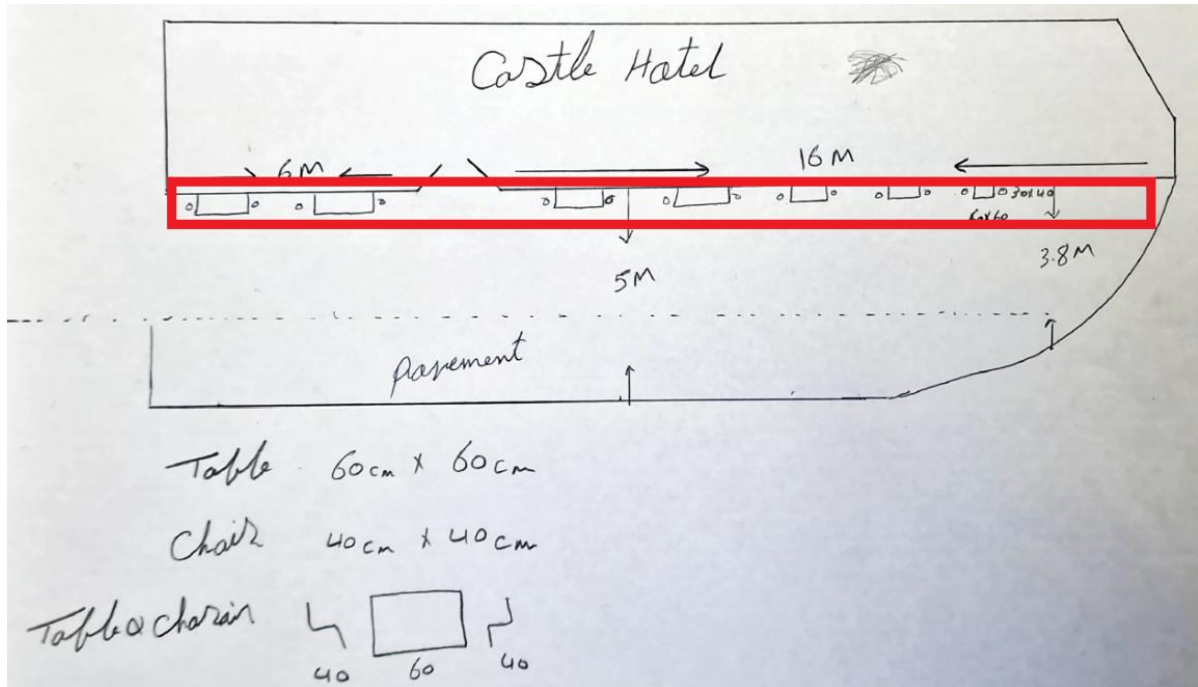 Castle Hotel
6M
16M
30x40
60x60
5M
3.8M
pavement
Table 60cm x 60cm
Chair 40cm x 40cm
Table & chair
40 60 40